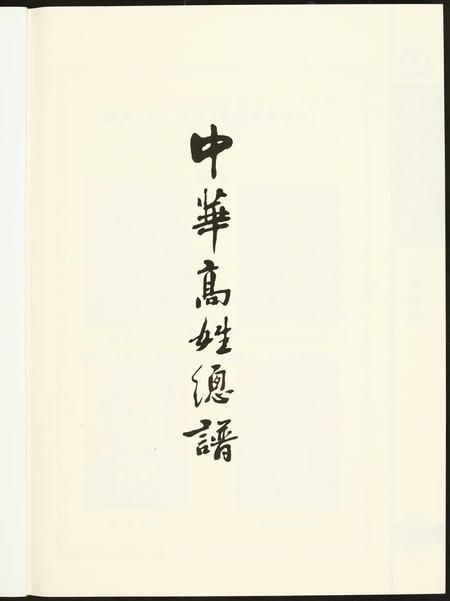 中華高姓總譜